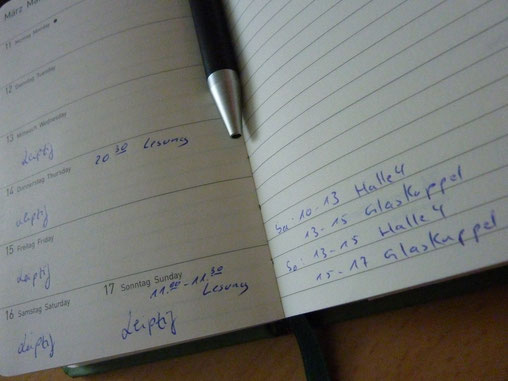 März Ma
11 Montag Monday
12 Dienstag Tuesday
13 Mittwoch Wednesday
Leipzig
20 30 Lesung
14 Donnerstag Thursday
Leipzig
15 Freitag Friday
Leipzig
16 Samstag Saturday
Leipzig
17 Sonntag Sunday
11.00 - 11.30
Lesung
Leipzig
Sa: 10-13 Halle 4
13-15 Glaskuppel
So: 13-15 Halle 4
15-17 Glaskuppel